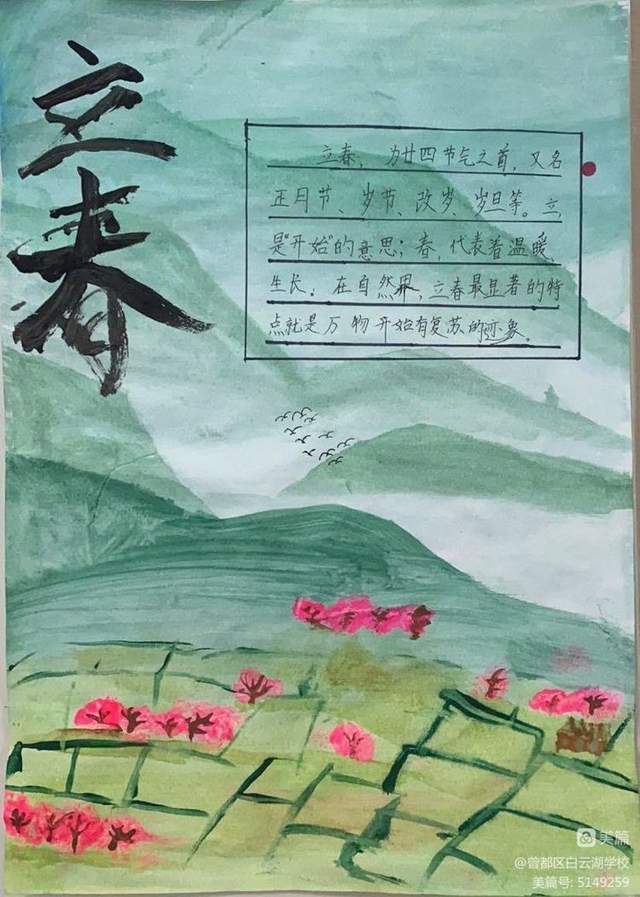 立春
立春，为廿四节气之首，又名
正月节、岁节、改岁、岁旦等。立，
是“开始”的意思；春，代表着温暖、
生长。在自然界，立春最显著的特
点就是万物开始有复苏的迹象。
美篇
@曾都区白云湖学校
美篇号: 5149259